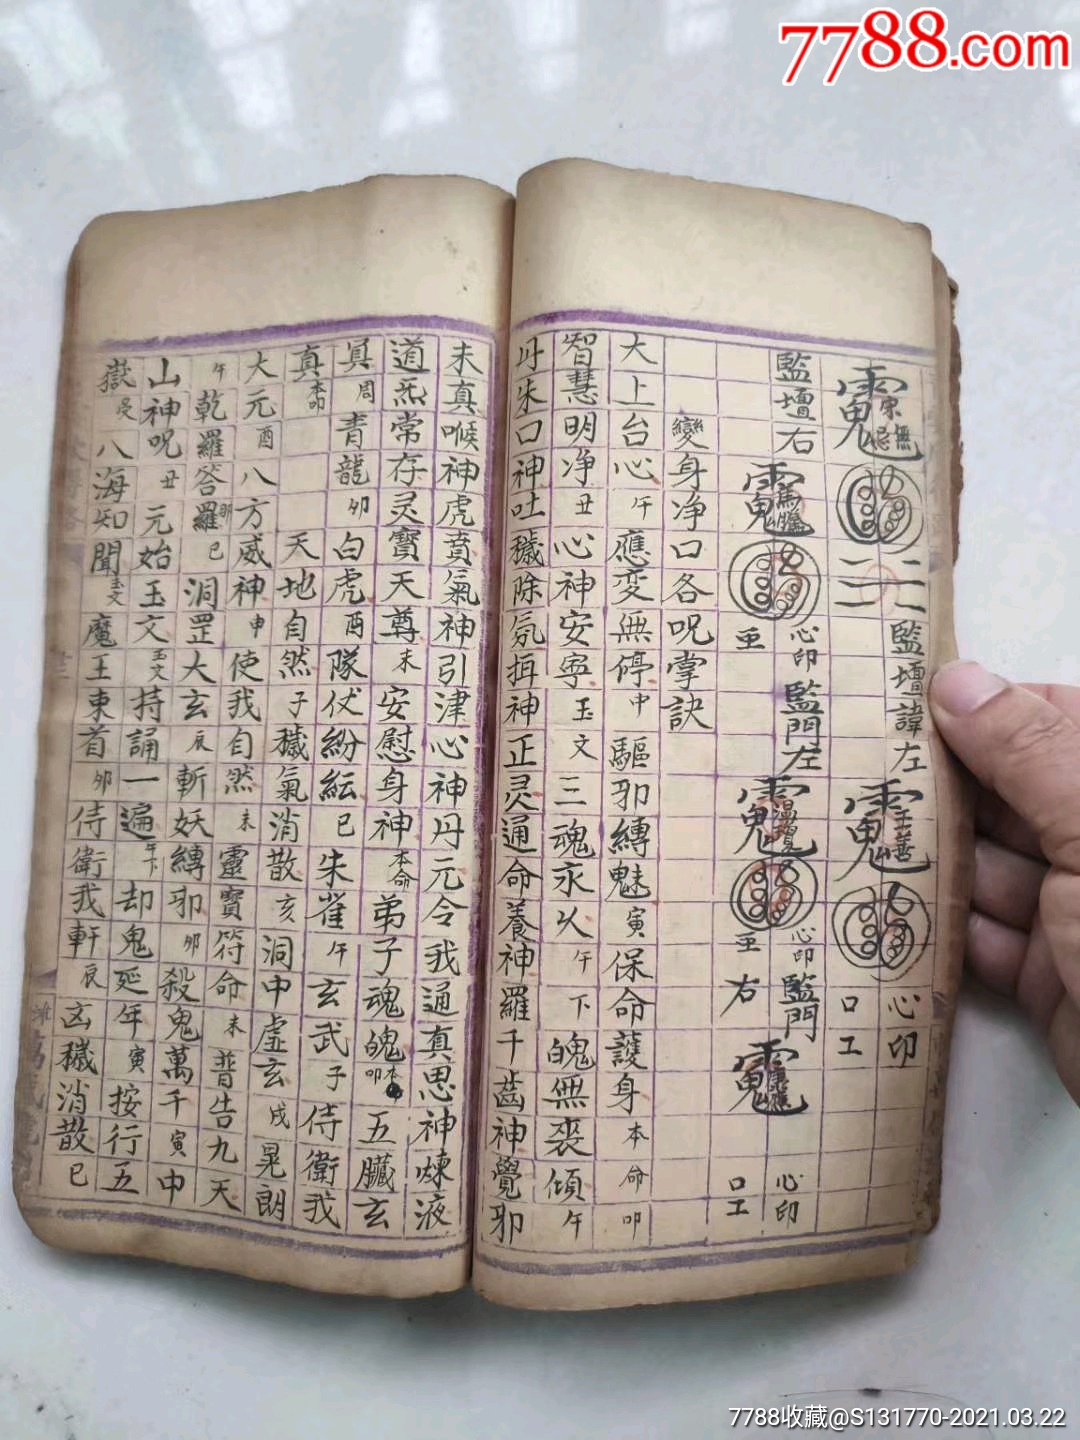 7788.com
監壇諱左
心印
口工
監壇右
心印
監門左
心印
監門
右
心印
口工
變身净口各呪掌訣
大上台心午應变無停中驅邪縛魅寅保命護身本命卯
智慧明净丑心神安寧玉文三魂永久午下魄無丧傾午
丹朱口神吐穢除氛揖神正灵通命養神羅千齒神覺邪
未真喉神虎賁氣神引津心神丹元令我通真思神煉液
道炁常存灵寶天尊未安慰身神本命弟子魂魄卯五臟玄
真周青龍卯白虎酉隊仗紛紜巳朱雀午玄武子侍衛我
真本命天地自然子穢氣消散亥洞中虛玄戌晃朗
大元酉八方威神申使我自然未靈寶符命未普告九天
午乾羅答羅明巳洞罡大玄辰斬妖縛邪卯殺鬼萬千寅中
山神呪丑元始玉文玉文持誦一遍午下却鬼延年寅按行五
嶽八海知聞玉文魔王東首卯侍衛我軒辰凶穢消散巳
7788收藏@S131770-2021.03.22